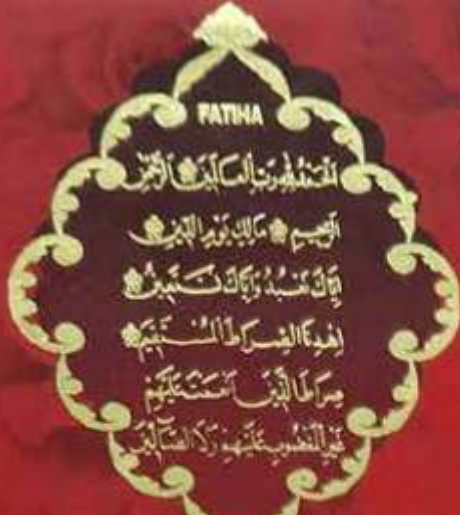 FATIHA
الحمد لله رب العالمين ۞ الرحمن
الرحيم ۞ مالك يوم الدين ۞
اياك نعبد واياك نستعين ۞
اهدنا الصراط المستقيم ۞
صراط الذين انعمت عليهم
غير المغضوب عليهم ولا الضالين